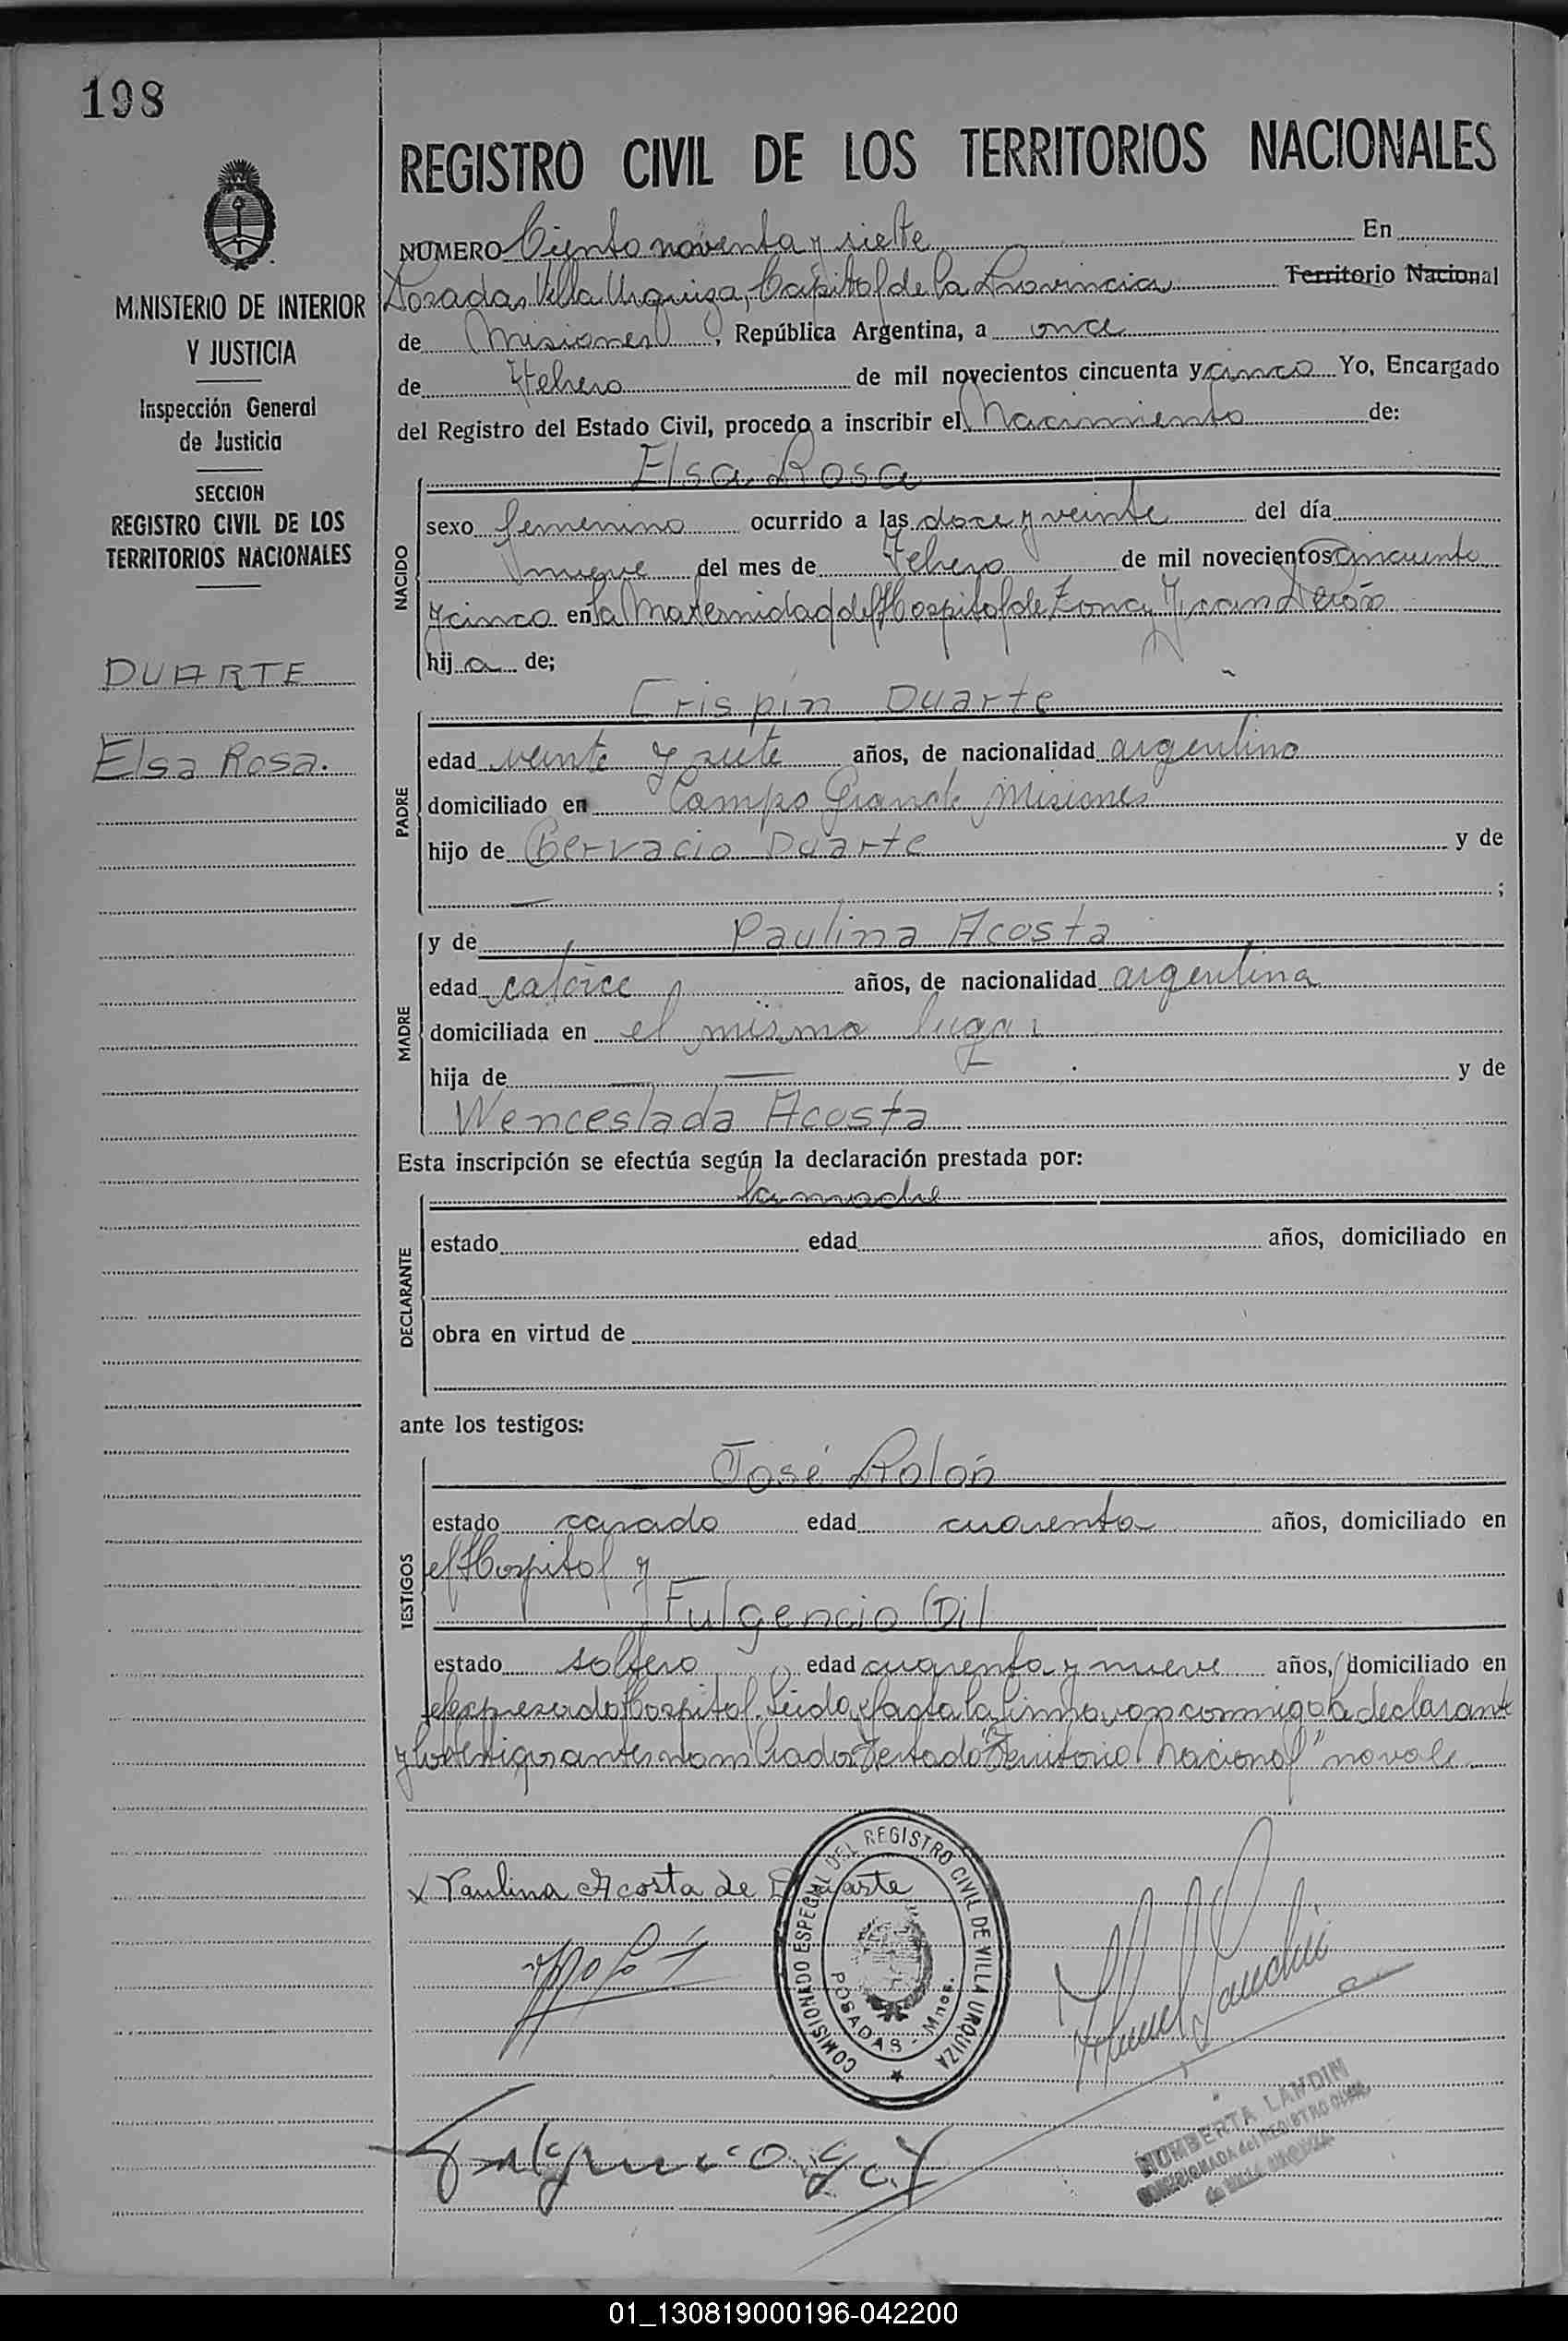 198
REGISTRO CIVIL DE LOS TERRITORIOS NACIONALES
MINISTERIO DE INTERIOR
Y JUSTICIA
Inspección General
de Justicia
SECCION
REGISTRO CIVIL DE LOS
TERRITORIOS NACIONALES
DUARTE
Elsa Rosa.
NUMERO Ciento noventa y siete En
Posadas Villa Urquiza, Capital de la Provincia Territorio Nacional
de Misiones, República Argentina, a once
de Febrero de mil novecientos cincuenta y cinco Yo, Encargado
del Registro del Estado Civil, procedo a inscribir el Nacimiento de:
Elsa Rosa
NACIDO
sexo femenino ocurrido a las doce y veinte del día
nueve del mes de Febrero de mil novecientos cincuenta
y cinco en la Maternidad del Hospital de Zona Perón
hija de;
Crispín Duarte
PADRE
edad veinte y siete años, de nacionalidad argentino
domiciliado en Campo Grande Misiones
hijo de Gervacio Duarte y de
— ;
MADRE
y de Paulina Acosta
edad catorce años, de nacionalidad argentina
domiciliada en el mismo lugar
hija de — y de
Wenceslada Acosta
Esta inscripción se efectúa según la declaración prestada por:
la madre
DECLARANTE
estado edad años, domiciliado en
obra en virtud de
ante los testigos:
José Rolón
TESTIGOS
estado casado edad cuarenta años, domiciliado en
el Hospital y
Fulgencio Gil
estado soltero edad cuarenta y nueve años, domiciliado en
el expresado Hospital. Leida el acta la firmaron conmigo la declarante
y los testigos antes nombrados. Testado "Territorio Nacional" no vale.
x Paulina Acosta de Duarte
COMISIONADO ESPECIAL DEL REGISTRO CIVIL DE VILLA URQUIZA
POSADAS - Mnes.
HUMBERTA LANDINI
COMISIONADA del REGISTRO CIVIL
de VILLA URQUIZA
01_130819000196-042200